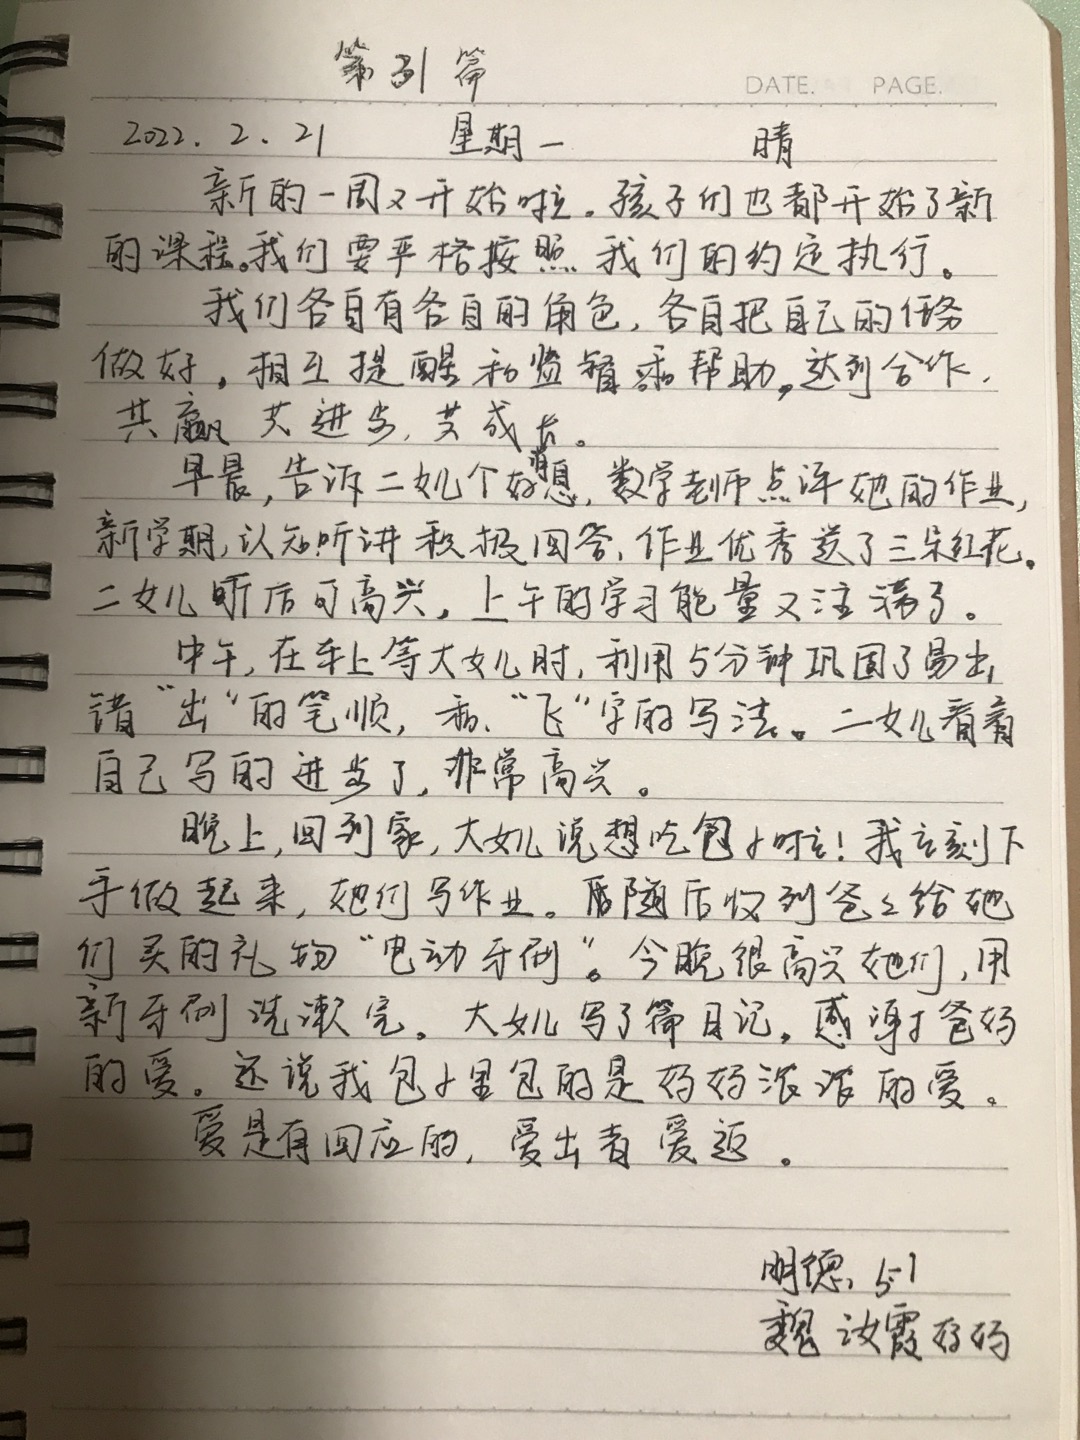 第31篇
DATE. PAGE.
2022.2.21 星期一 晴
新的一周又开始啦。孩子们也都开始了新
的课程。我们要严格按照我们的约定执行。
我们各自有各自的角色,各自把自己的任务
做好,相互提醒和监督和帮助。达到合作,
共赢 共进步,共成长。
早晨,告诉二女儿个好消息,数学老师点评她的作业,
新学期,认知听讲积极回答,作业优秀送了三朵红花。
二女儿听后可高兴,上午的学习能量又注满了。
中午,在车上等大女儿时,利用5分钟巩固了易出
错“出”的笔顺,和“飞”字的写法。二女儿看着
自己写的进步了,非常高兴。
晚上,回到家,大女儿说想吃包子时!我立刻下
手做起来,她们写作业。随后收到爸爸给她
们买的礼物“电动牙刷”。今晚很高兴她们,用
新牙刷洗漱完。大女儿写了篇日记。感谢爸妈
的爱。还说我包子里包的是妈妈浓浓的爱。
爱是有回应的,爱出者爱返。
明德、5.1
魏汝霞妈妈